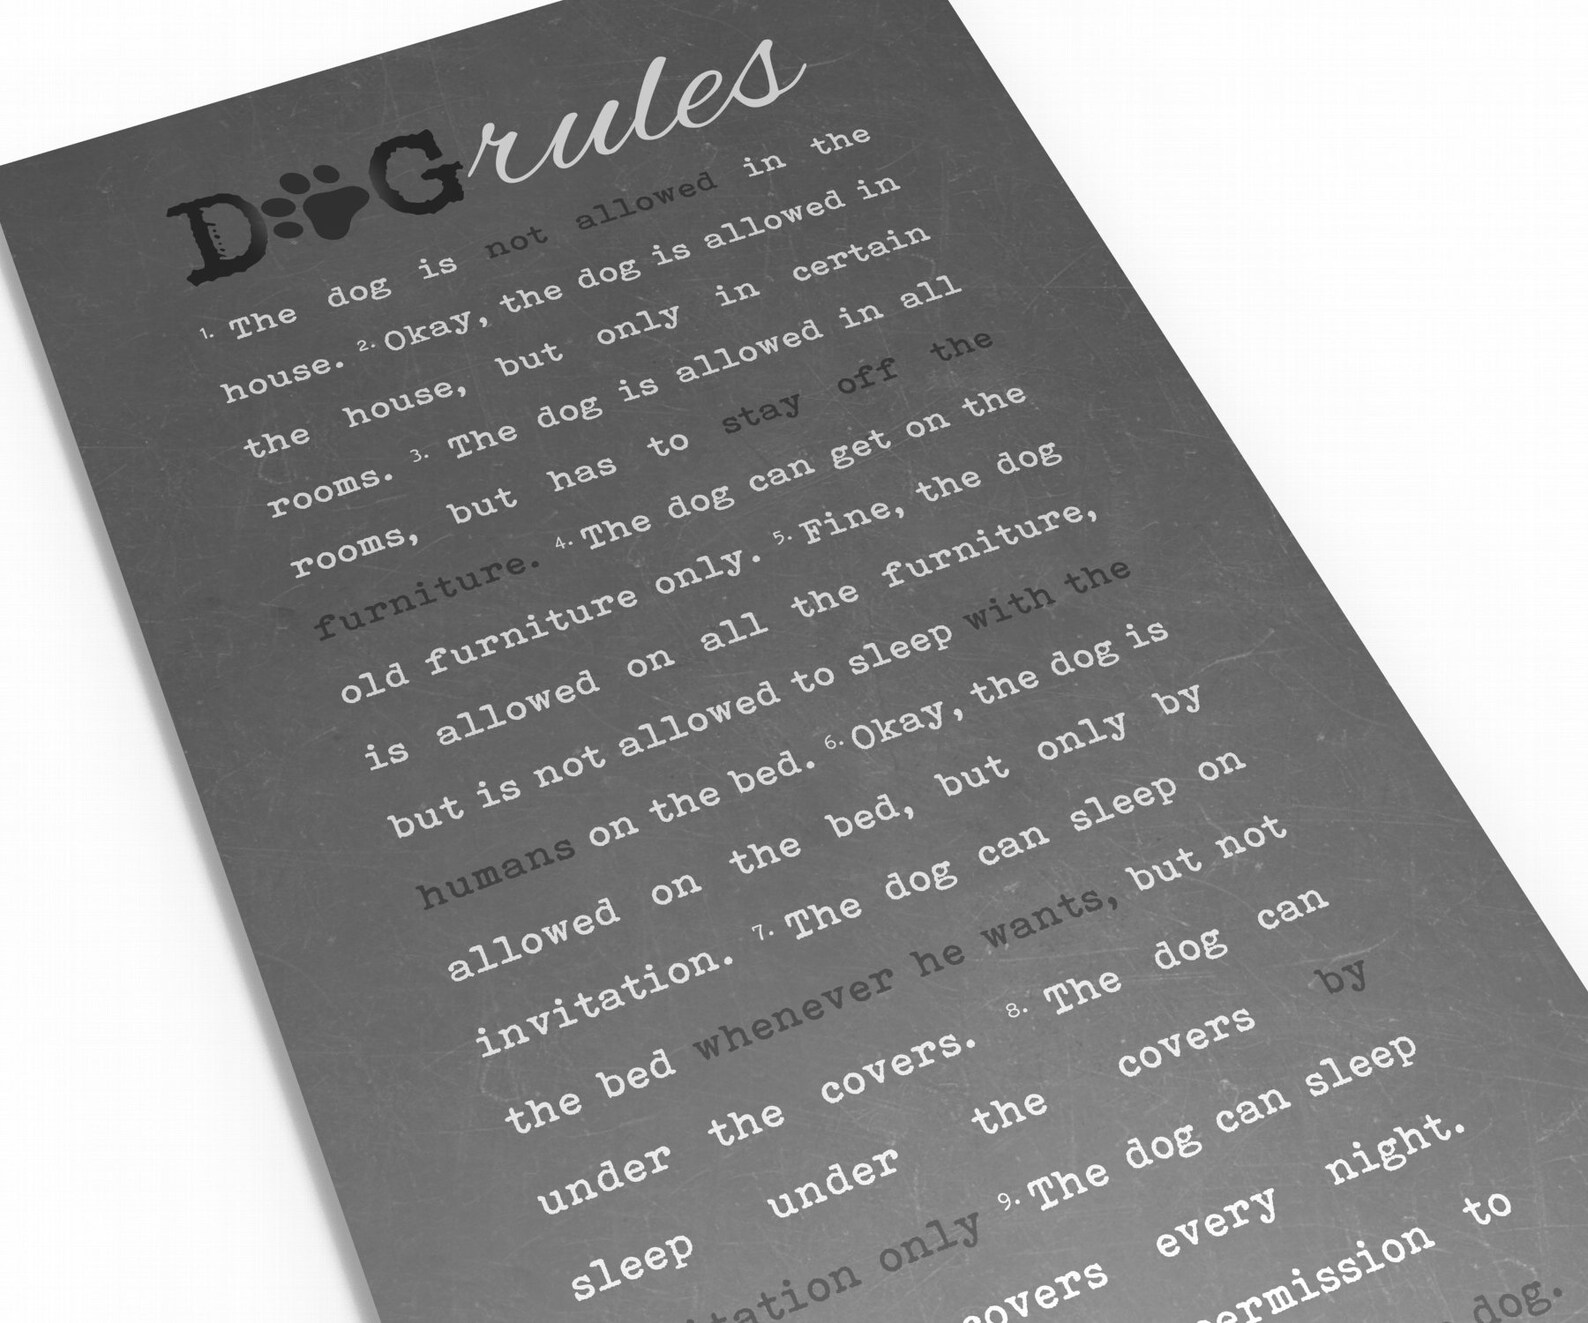 DOG rules
1. The dog is not allowed in the
house. 2. Okay, the dog is allowed in
the house, but only in certain
rooms. 3. The dog is allowed in all
rooms, but has to stay off the
furniture. 4. The dog can get on the
old furniture only. 5. Fine, the dog
is allowed on all the furniture,
but is not allowed to sleep with the
humans on the bed. 6. Okay, the dog is
allowed on the bed, but only by
invitation. 7. The dog can sleep on
the bed whenever he wants, but not
under the covers. 8. The dog can
sleep under the covers by
only 9. The dog can sleep
covers every night.
to
dog.